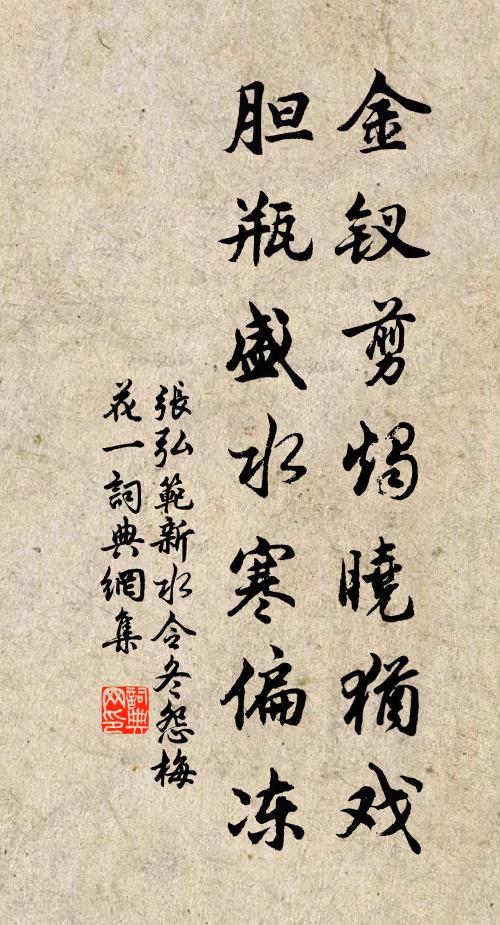 金钗剪烛曉猶戏
胆瓶盛水寒偏冻
張弘範新水令冬怨梅
花一詞典網集
詞典
网印